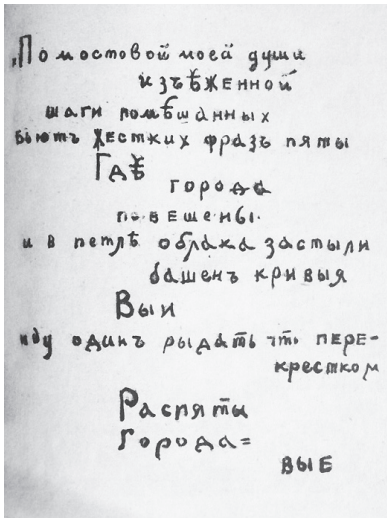 „По мостовой моей души
изъѣженной
шаги помѣшанных
бьютъ жестких фразъ пяты
Гдѣ
города
повешены
и в петлѣ облака застыли
башенъ кривыя
Выи
иду одинъ рыдать что пере-
крестком
Распяты
Города=
вые